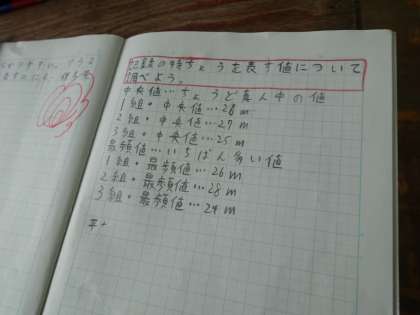 記録の特ちょうを表す値について
調べよう。
中央値…ちょうど真ん中の値
1組・中央値…26m
2組・中央値…27m
3組・中央値…25m
最頻値…いちばん多い値
1組・最頻値…26m
2組・最頻値…28m
3組・最頻値…24m
平